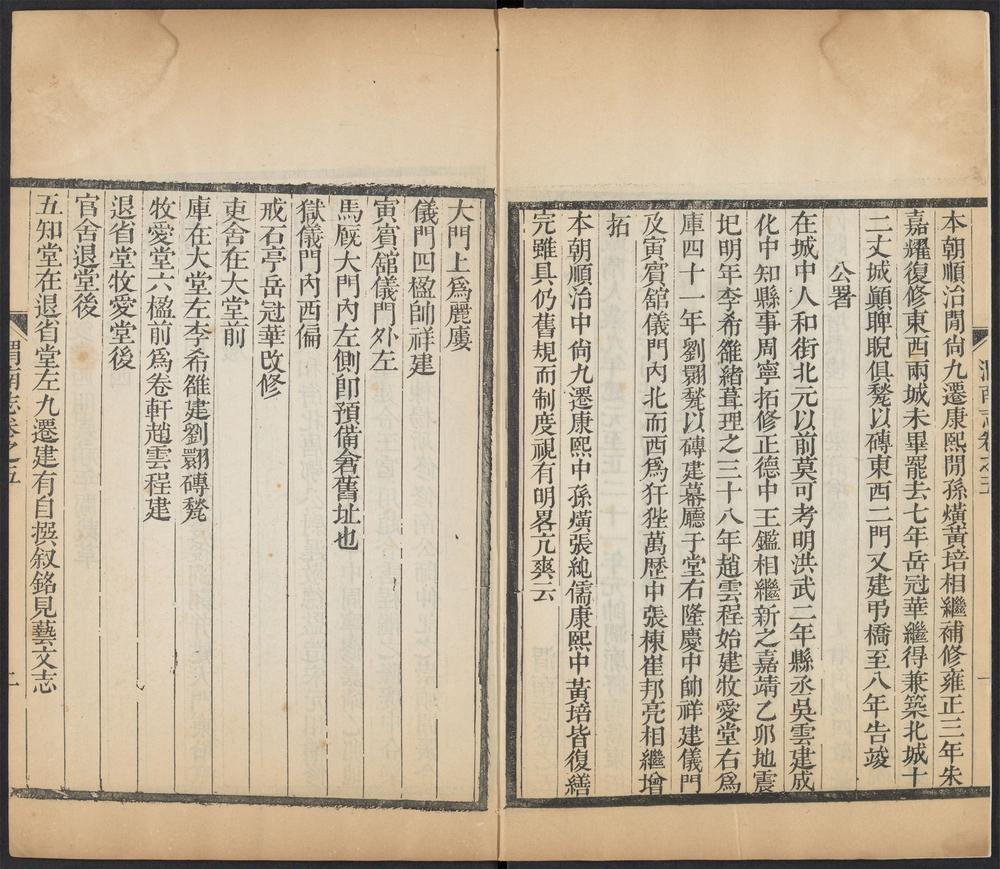 本朝順治間尙九遷康熙間孫爌黃培相繼補修雍正三年朱
嘉耀復修東西兩城未畢罷去七年岳冠華繼得兼築北城十
二丈城顚睥睨俱甃以磚東西二門又建弔橋至八年告竣
公署
在城中人和街北元以前莫可考明洪武二年縣丞吳雲建成
化中知縣事周寧拓修正德中王鑑相繼新之嘉靖乙卯地震
圯明年李希雒緒葺理之三十八年趙雲程始建牧愛堂右爲
庫四十一年劉翾甃以磚建幕廳于堂右隆慶中帥祥建儀門
及寅賓舘儀門內北而西爲犴狴萬歷中張棟崔邦亮相繼增
拓
本朝順治中尙九遷康熙中孫爌張純儒康熙中黃培皆復繕
完雖具仍舊規而制度視有明畧亢爽云
渭南志卷之五
一
大門上爲麗廔
儀門四楹帥祥建
寅賓舘儀門外左
馬廐大門內左側卽預備倉舊址也
獄儀門內西偏
戒石亭岳冠華改修
吏舍在大堂前
庫在大堂左李希雒建劉翾磚甃
牧愛堂六楹前爲卷軒趙雲程建
退省堂牧愛堂後
官舍退堂後
五知堂在退省堂左九遷建有自撰叙銘見藝文志
渭南志卷之五
二